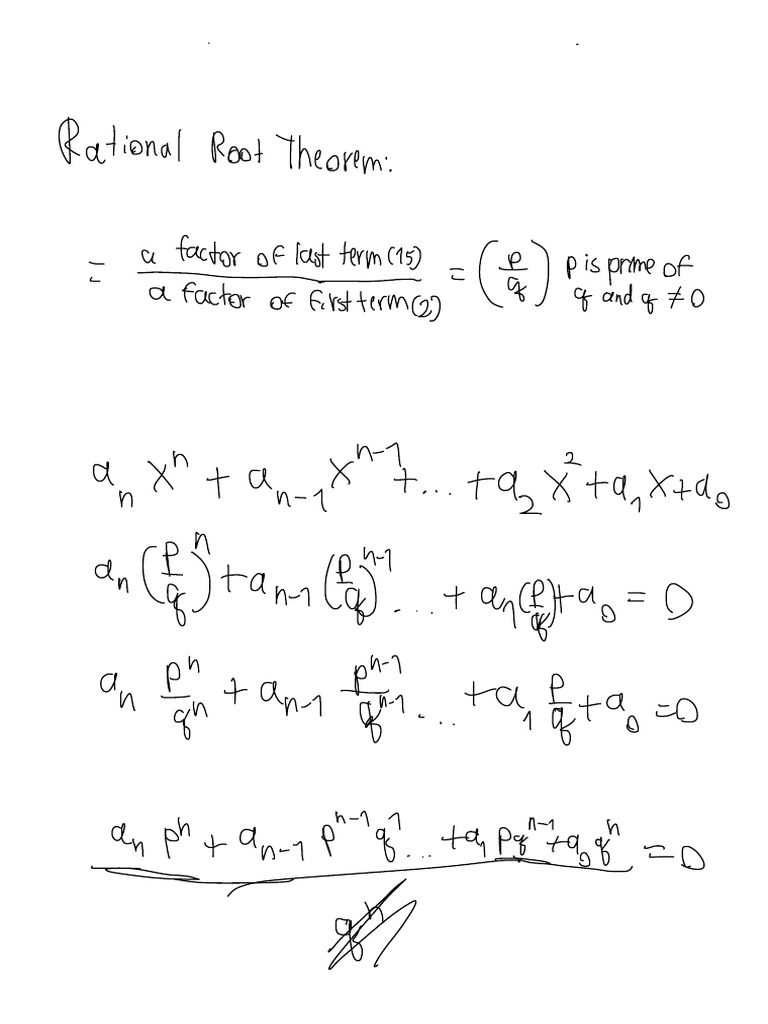 Rational Root Theorem:
= a factor of last term(15) / a factor of first term(2) = (p/q) p is prime of q and q ≠ 0
aₙ xⁿ + aₙ₋₁ xⁿ⁻¹ + ... + a₂ x² + a₁ x + a₀
aₙ (p/q)ⁿ + aₙ₋₁ (p/q)ⁿ⁻¹ ... + a₁ (p/q) + a₀ = 0
aₙ pⁿ/qⁿ + aₙ₋₁ pⁿ⁻¹/qⁿ⁻¹ ... + a₁ p/q + a₀ = 0
aₙ pⁿ + aₙ₋₁ pⁿ⁻¹ q¹ ... + a₁ pqⁿ⁻¹ + a₀ qⁿ = 0
qⁿ